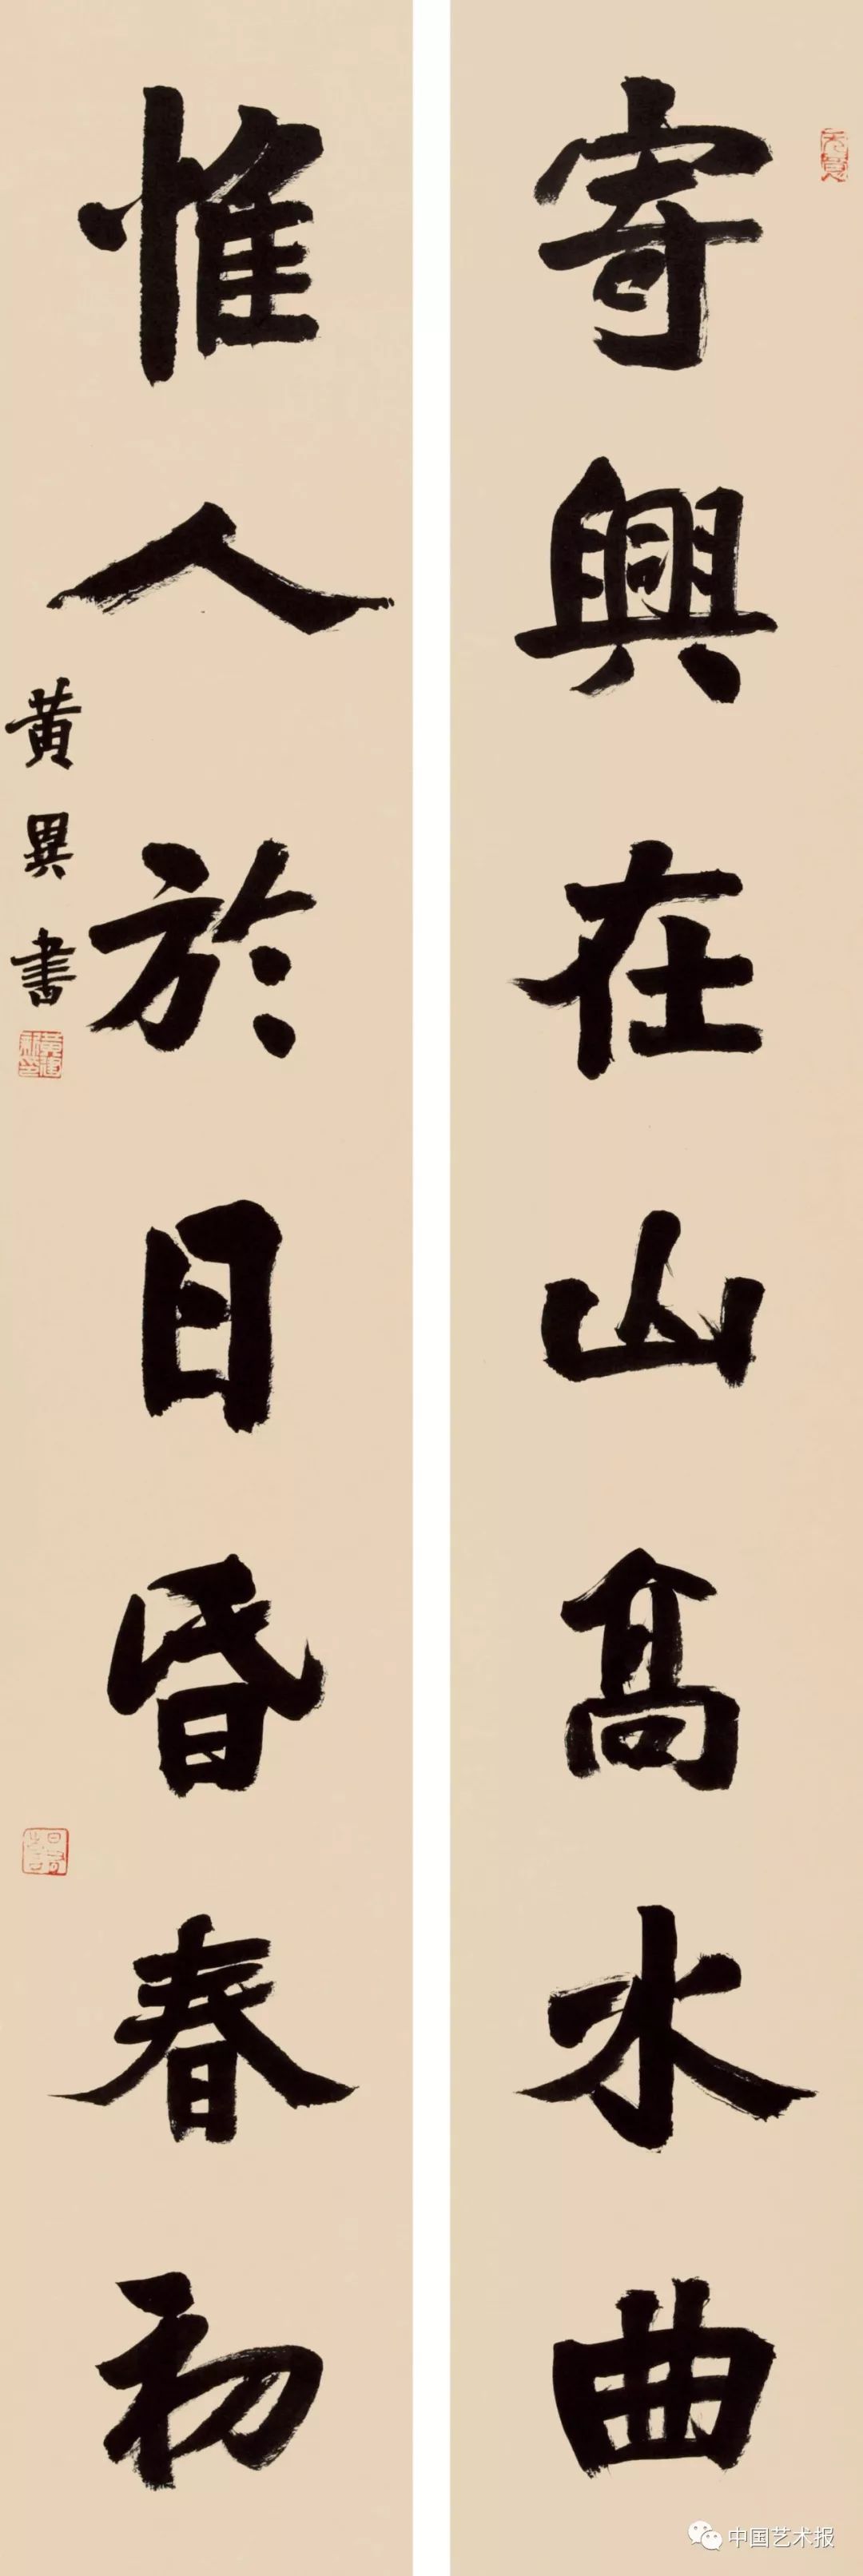 寄興在山高水曲
惟人於日昏春初
黄異書
中国艺术报